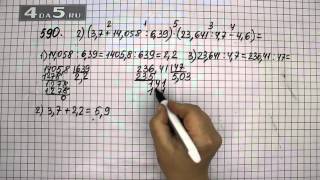 4DA5.RU
590. 2) (3,7 + 14,058 : 6,39) · (23,641 : 4,7 - 4,6) =
1) 14,058 : 6,39 = 1405,8 : 639 = 2,2 3) 23,641 : 4,7 = 236,41 : 47 =
1405,8 | 639 236,41 | 47
1278 2,2 235 5,03
1278 141
1278
0
2) 3,7 + 2,2 = 5,9